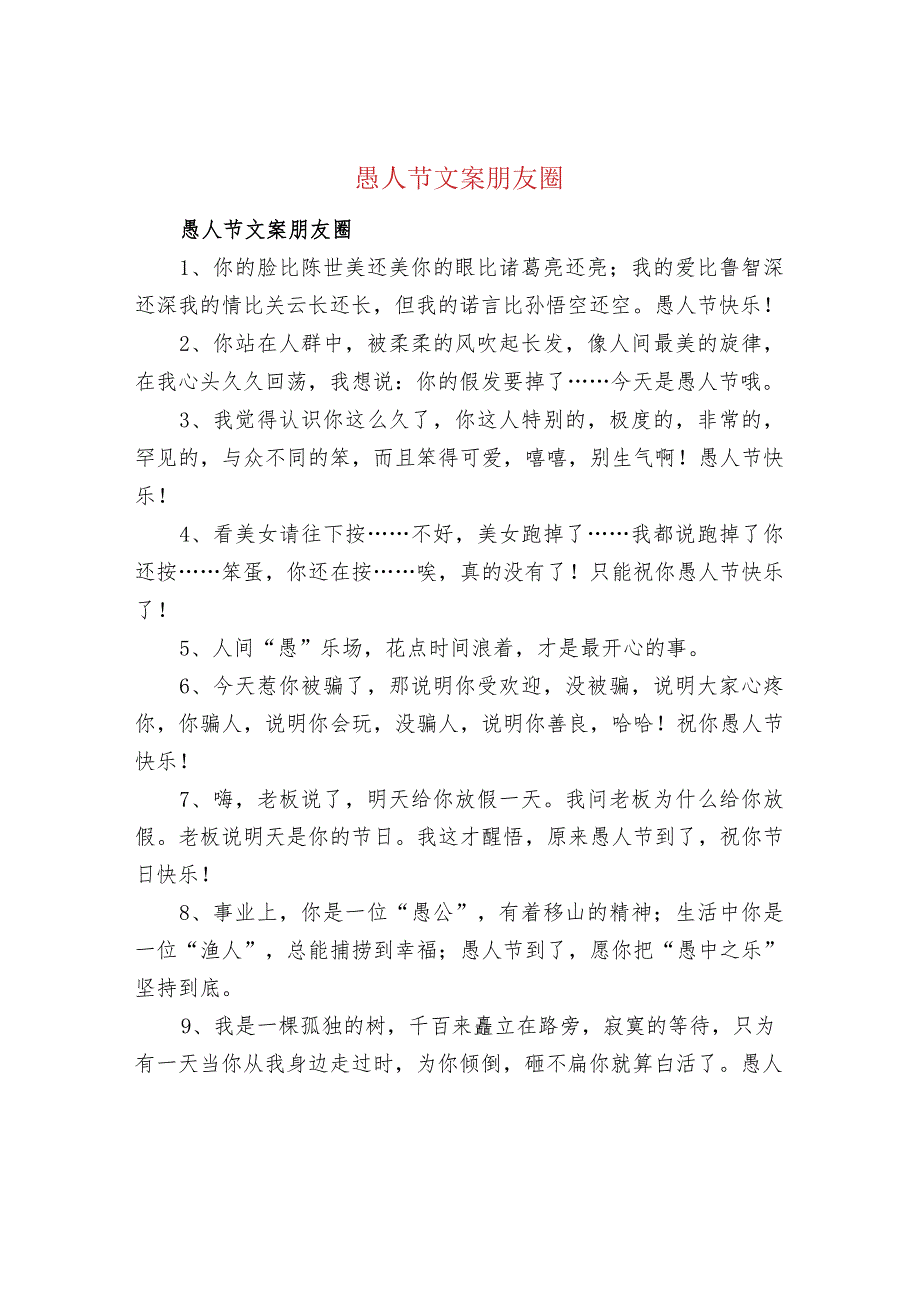 愚人节文案朋友圈
愚人节文案朋友圈
1、你的脸比陈世美还美你的眼比诸葛亮还亮；我的爱比鲁智深
还深我的情比关云长还长，但我的诺言比孙悟空还空。愚人节快乐！
2、你站在人群中，被柔柔的风吹起长发，像人间最美的旋律，
在我心头久久回荡，我想说：你的假发要掉了……今天是愚人节哦。
3、我觉得认识你这么久了，你这人特别的，极度的，非常的，
罕见的，与众不同的笨，而且笨得可爱，嘻嘻，别生气啊！愚人节快
乐！
4、看美女请往下按……不好，美女跑掉了……我都说跑掉了你
还按……笨蛋，你还在按……唉，真的没有了！只能祝你愚人节快乐
了！
5、人间“愚”乐场，花点时间浪着，才是最开心的事。
6、今天惹你被骗了，那说明你受欢迎，没被骗，说明大家心疼
你，你骗人，说明你会玩，没骗人，说明你善良，哈哈！祝你愚人节
快乐！
7、嗨，老板说了，明天给你放假一天。我问老板为什么给你放
假。老板说明天是你的节日。我这才醒悟，原来愚人节到了，祝你节
日快乐！
8、事业上，你是一位“愚公”，有着移山的精神；生活中你是
一位“渔人”，总能捕捞到幸福；愚人节到了，愿你把“愚中之乐”
坚持到底。
9、我是一棵孤独的树，千百来矗立在路旁，寂寞的等待，只为
有一天当你从我身边走过时，为你倾倒，砸不扁你就算白活了。愚人